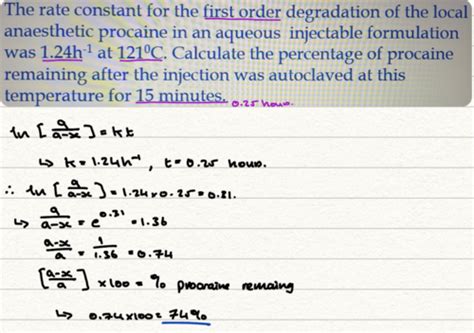 The rate constant for the first order degradation of the local
anaesthetic procaine in an aqueous injectable formulation
was 1.24h⁻¹ at 121⁰C. Calculate the percentage of procaine
remaining after the injection was autoclaved at this
temperature for 15 minutes. 0.25 hours.
ln [a/a-x] = kt
↳ k = 1.24h⁻¹, t = 0.25 hours.
∴ ln [a/a-x] = 1.24 x 0.25 = 0.31.
↳ a/a-x = e^0.31 = 1.36
a-x/a = 1/1.36 = 0.74
[a-x/a] x 100 = % procaine remaing
↳ 0.74x100 = 74%